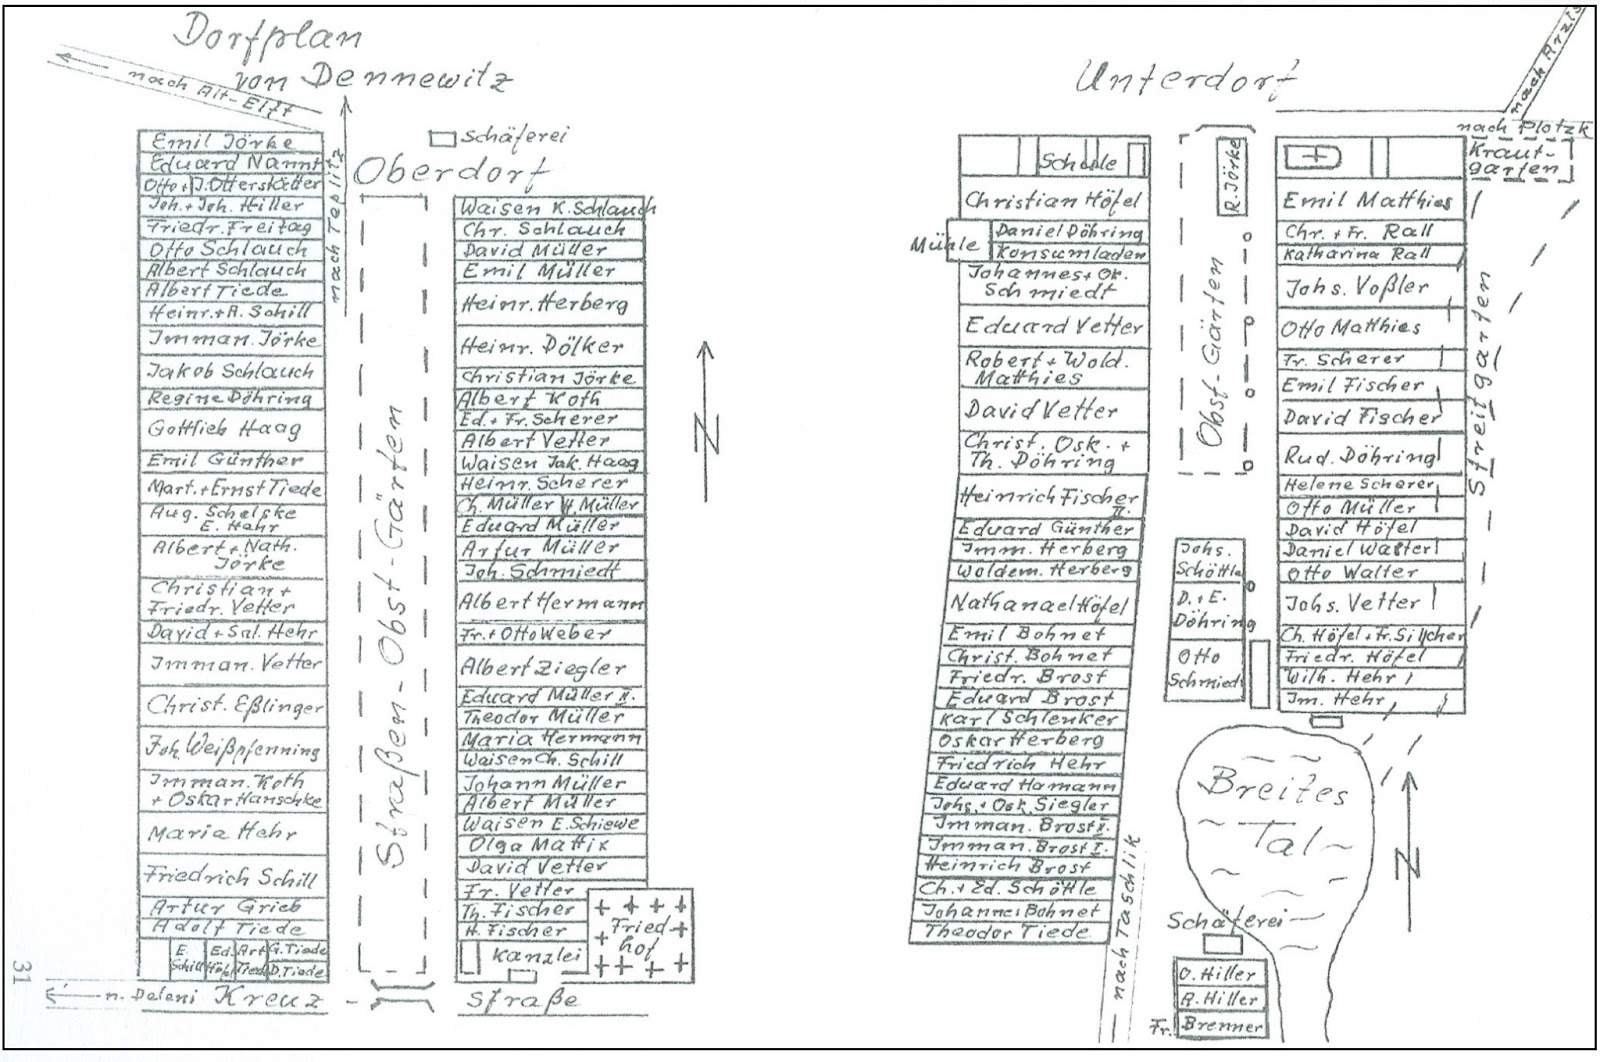 Dorfplan
von Dennewitz
nach Alt-Elft
nach Teplitz
Schäferei
Oberdorf
Emil Jörke
Eduard Nannt
Otto + J. Otterstätter
Joh. + Joh. Hiller
Friedr. Freitag
Otto Schlauch
Albert Schlauch
Albert Tiede
Heinr. + A. Schill
Imman. Jörke
Jakob Schlauch
Regine Döhring
Gottlieb Haag
Emil Günther
Mart. + Ernst Tiede
Aug. Schelske
E. Hehr
Albert + Nath.
Jörke
Christian +
Friedr. Vetter
David + Sal. Hehr
Imman. Vetter
Christ. Eßlinger
Joh. Weißpfenning
Imman. Koth
+ Oskar Hanschke
Maria Hehr
Friedrich Schill
Artur Grieb
Adolf Tiede
E. Schill
Ed. Höfel
Art. Tied
G. Tiede
D. Tiede
Straßen-Obst-Gärten
Waisen K. Schlauch
Chr. Schlauch
David Müller
Emil Müller
Heinr. Herberg
Heinr. Dölker
Christian Jörke
Albert Koth
Ed. + Fr. Scherer
Albert Vetter
Waisen Jak. Haag
Heinr. Scherer
Ch. Müller
H Müller
Eduard Müller
Artur Müller
Joh. Schmiedt
Albert Hermann
Fr. + Otto Weber
Albert Ziegler
Eduard Müller II.
Theodor Müller
Maria Hermann
Waisen Ch. Schill
Johann Müller
Albert Müller
Waisen E. Schiewe
Olga Mattix
David Vetter
Fr. Vetter
Th. Fischer
H. Fischer
Kanzlei
Fried-
hof
n. Deleni Kreuz - Straße
N
31
Unterdorf
nach Arzis
nach Plotzk
Schule
Christian Höfel
Mühle
Daniel Döhring
Konsumladen
Johannes + Ok.
Schmiedt
Eduard Vetter
Robert + Wold.
Matthies
David Vetter
Christ. Osk. +
Th. Döhring
Heinrich Fischer
II.
Eduard Günther
Imm. Herberg
Woldem. Herberg
Nathanael Höfel
Emil Bohnet
Christ. Bohnet
Friedr. Brost
Eduard Brost
Karl Schlenker
Oskar Herberg
Friedrich Hehr
Eduard Hamann
Johs. + Osk. Siegler
Imman. Brost II.
Imman. Brost I.
Heinrich Brost
Ch. + Ed. Schöttle
Johannes Bohnet
Theodor Tiede
nach Taschlik
R. Jörke
Obst-Gärten
Johs.
Schöttle
D. + E.
Döhring
Otto
Schmied
Kraut-
gärten
Emil Matthies
Chr. + Fr. Rall
Katharina Rall
Johs. Voßler
Otto Matthies
Fr. Scherer
Emil Fischer
David Fischer
Rud. Döhring
Helene Scherer
Otto Müller
David Höfel
Daniel Walter
Otto Walter
Johs. Vetter
Ch. Höfel + Fr. Silcher
Friedr. Höfel
Wilh. Hehr
Im. Hehr
Streitgarten
Breites
Tal
N
Schäferei
O. Hiller
R. Hiller
Fr. Brenner